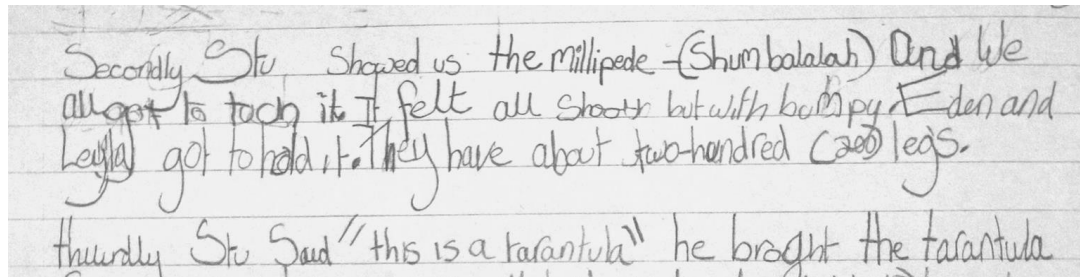 Secondly Stu Showed us the millipede - (Shumbalalah) and We
all got to toch it. It felt all smooth but with bumpy. Eden and
Leyla got to hold it. They have about two-hundred (200) legs.
thuurdly Stu Said "this is a tarantula" he broght the tarantula